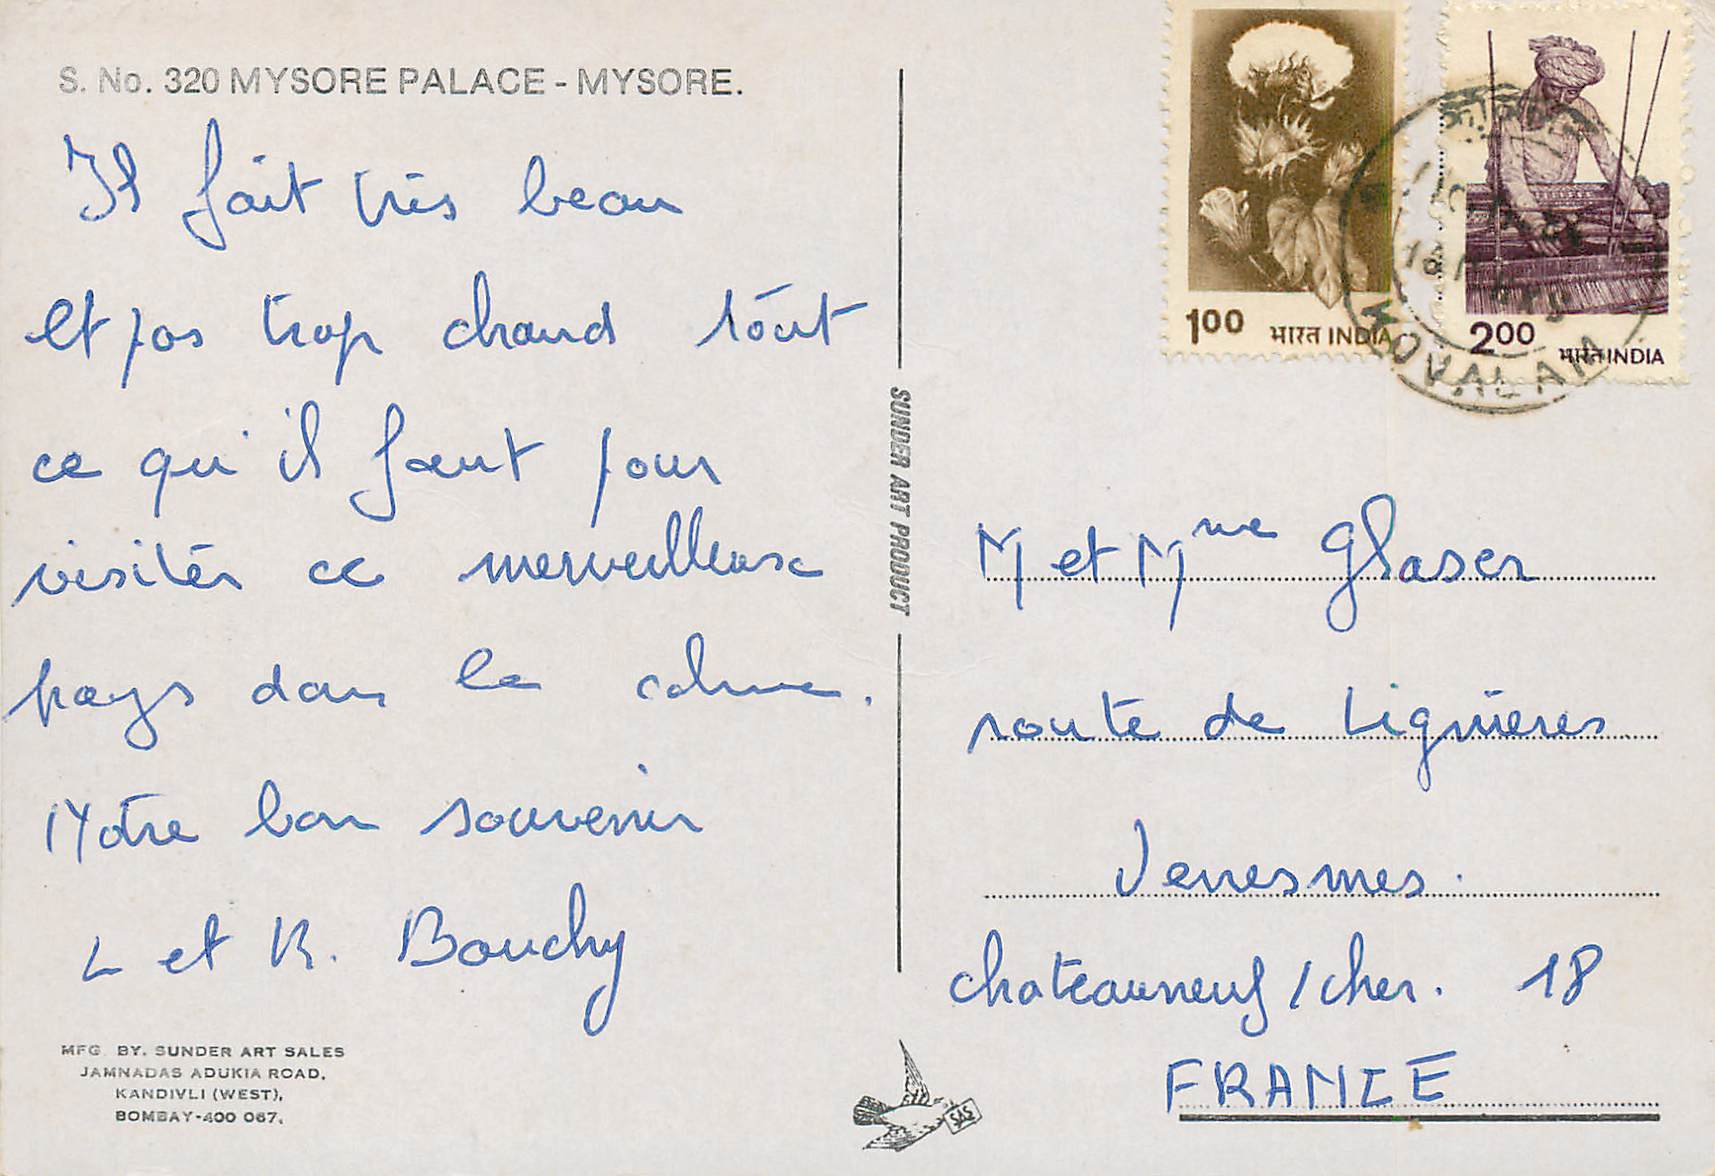 S. No. 320 MYSORE PALACE - MYSORE.
Il fait très beau
et pas trop chaud tout
ce qu'il faut pour
visiter ce merveilleuse
pays dans le calme.
Notre bon souvenir
L et R. Bouchy
MFG. BY. SUNDER ART SALES
JAMNADAS ADUKIA ROAD,
KANDIVLI (WEST),
BOMBAY-400 067.
SUNDER ART PRODUCT
SAS
1.00 भारत INDIA
2.00 भारत INDIA
KOVALAM
M et Mme Glaser
route de Lignières
Venesmes.
chateauneuf / cher. 18
FRANCE